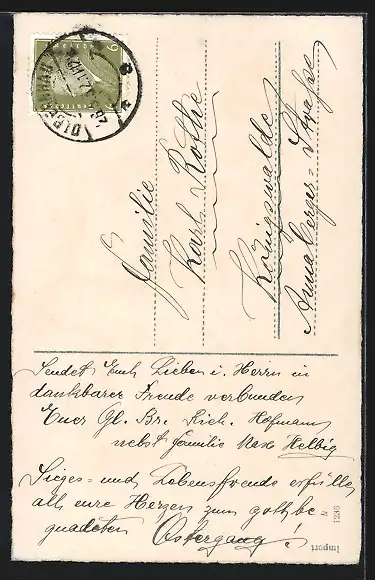 Familie
Karl Rothe
Königswalde
Annaberger-Straße
Sendet Euch Lieben i. Herrn in
dankbarer Freude verbunden
Euer Gl. Br. Rich. Hofmann
nebst Familie Max Helbig
Sieges- und Lebensfreude erfülle
all eure Herzen zum gottbe
gnadeten Ostergang!
Import
N 1236
6